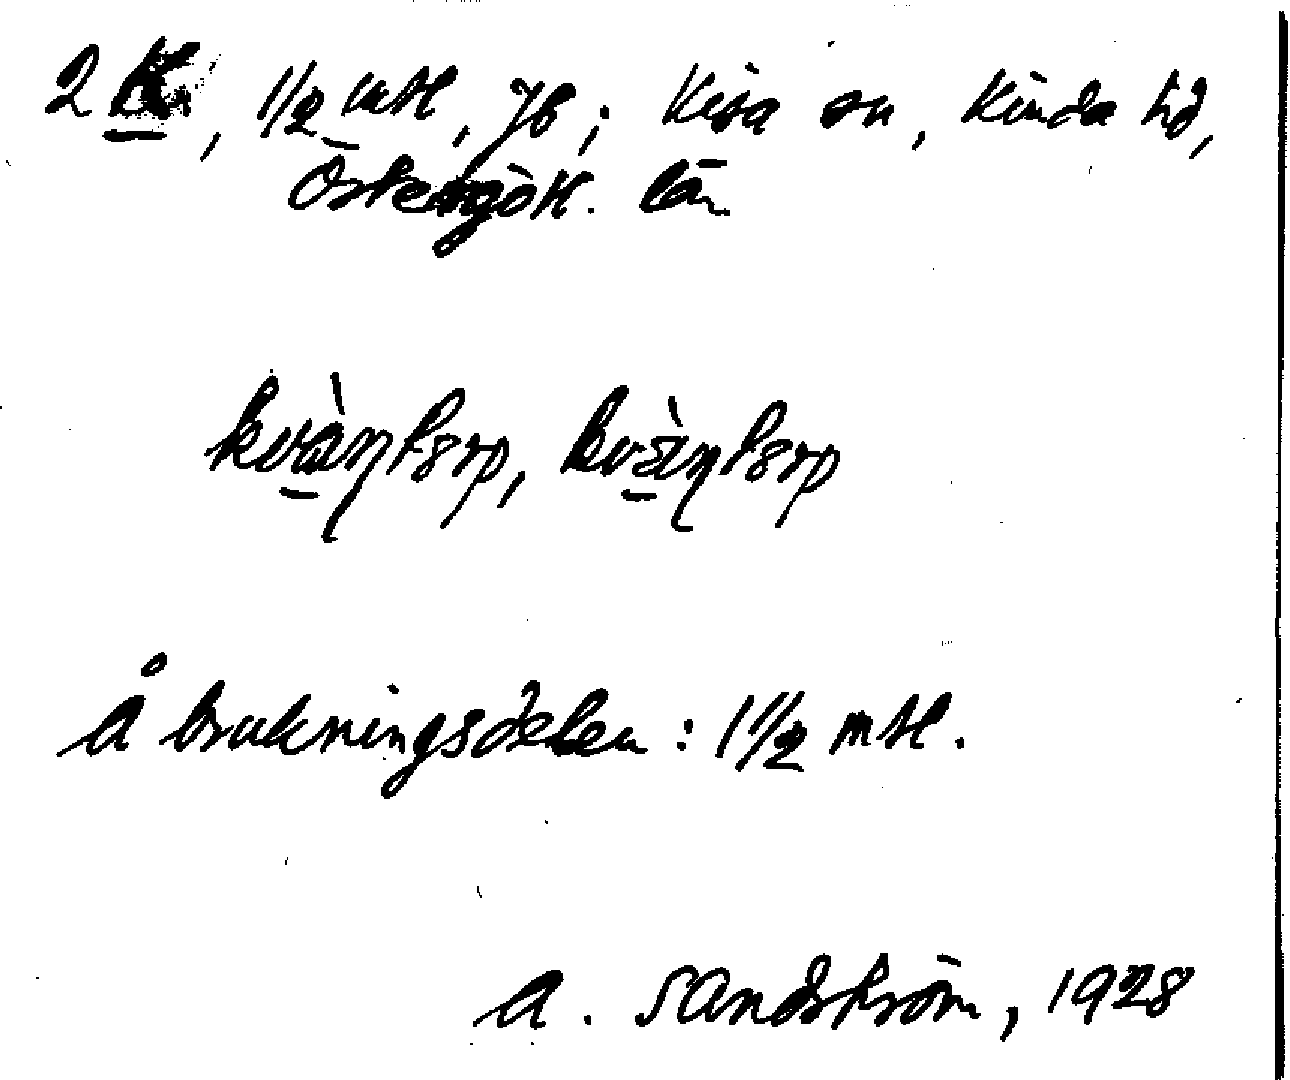 2 K, 1/2 mtl, Jb; Kisa sn, Kinda hd,
Östergötl. län
kvàntorp, kvæ̀ntorp
Å brukningsdelen: 1 1/2 mtl.
A. Sandström, 1928